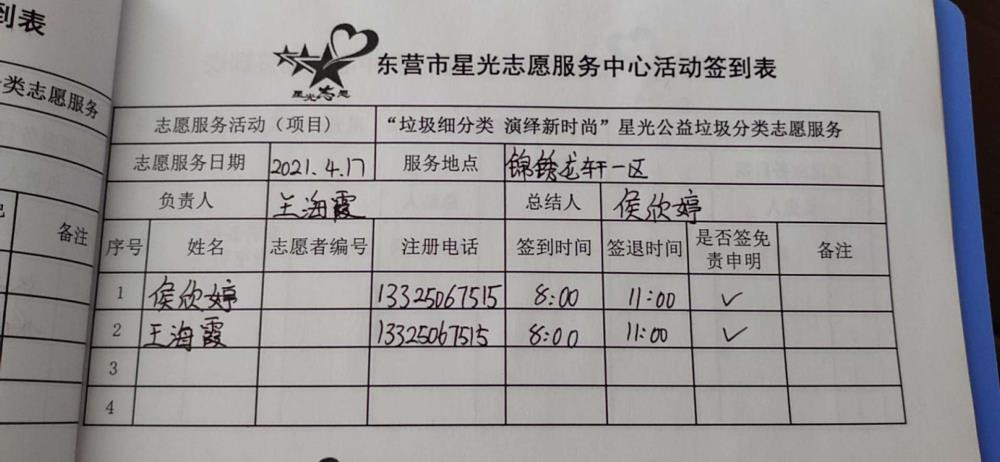 到表
类志愿服务
备注
星光志愿
东营市星光志愿服务中心活动签到表
志愿服务活动（项目） “垃圾细分类 演绎新时尚”星光公益垃圾分类志愿服务
志愿服务日期 2021.4.17 服务地点 锦绣龙轩一区
负责人 王海霞 总结人 侯欣婷
序号 姓名 志愿者编号 注册电话 签到时间 签退时间 是否签免责申明 备注
1 侯欣婷 13325067515 8:00 11:00 ✓
2 王海霞 13325067515 8:00 11:00 ✓
3
4